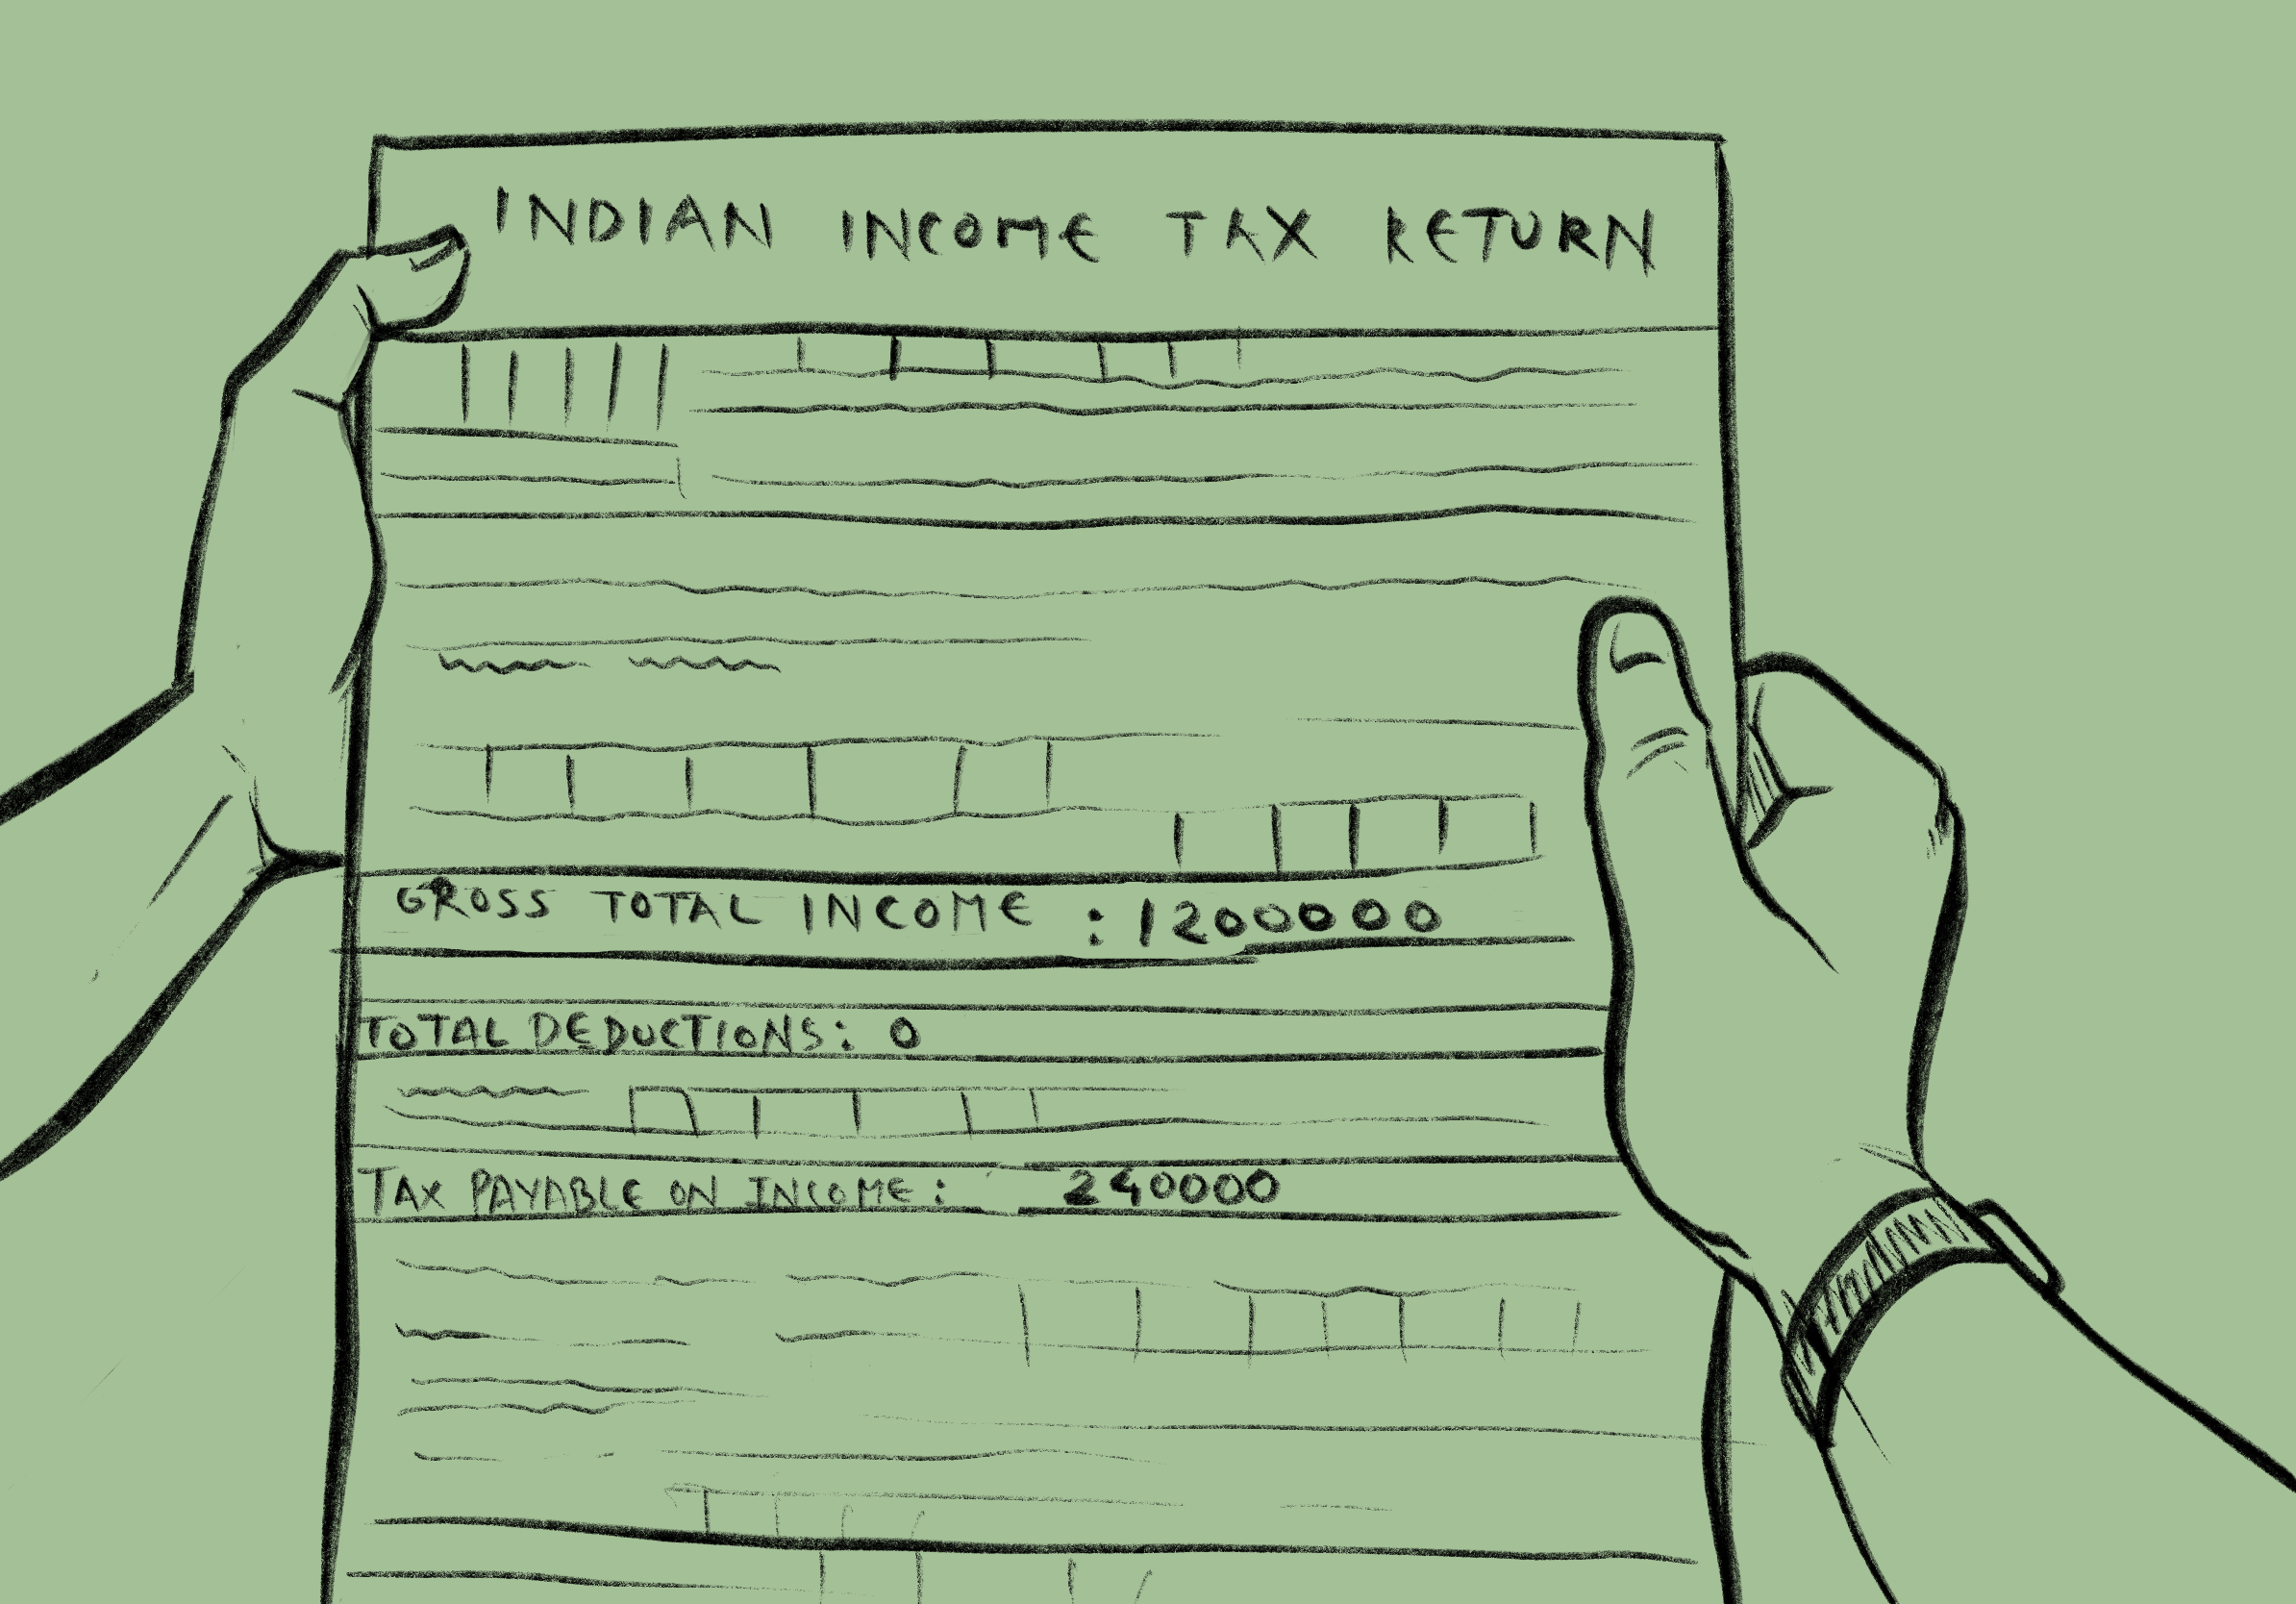 INDIAN INCOME TAX RETURN
GROSS TOTAL INCOME : 1200000
TOTAL DEDUCTIONS: 0
TAX PAYABLE ON INCOME: 240000